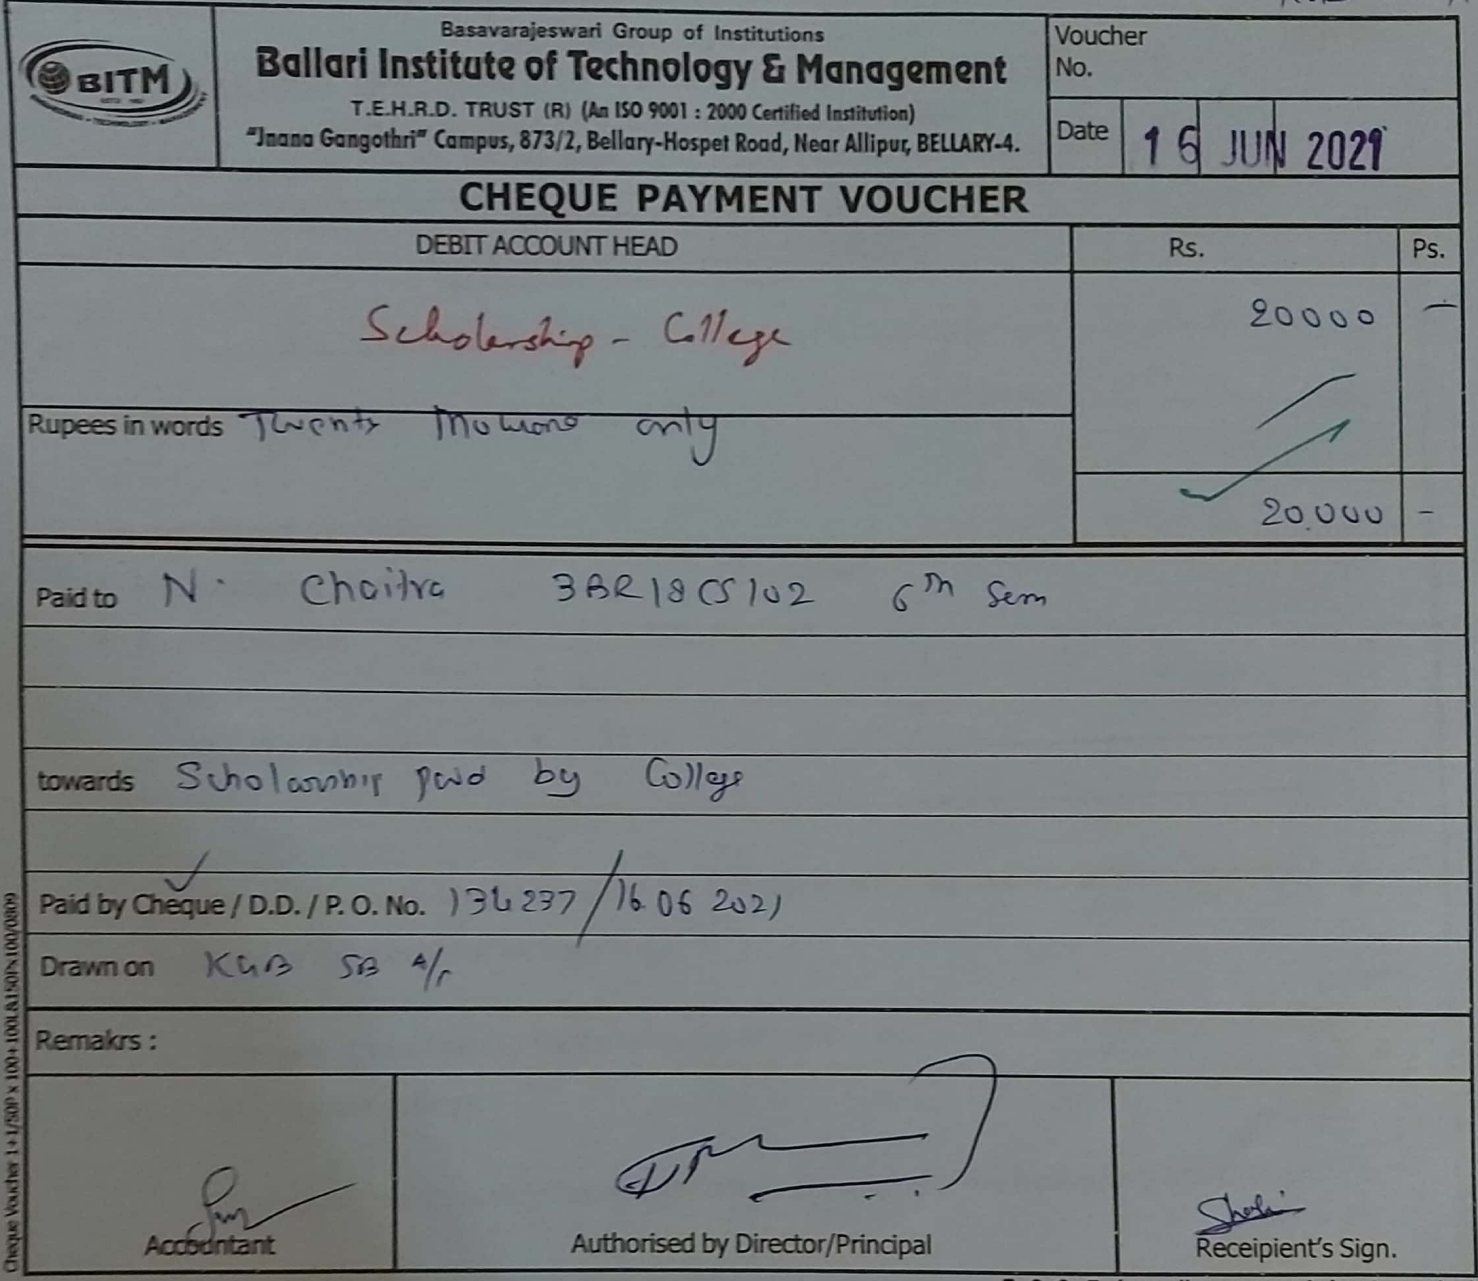 BITM
Basavarajeswari Group of Institutions
Ballari Institute of Technology & Management
T.E.H.R.D. TRUST (R) (An ISO 9001 : 2000 Certified Institution)
"Jnana Gangothri" Campus, 873/2, Bellary-Hospet Road, Near Allipur, BELLARY-4.
Voucher
No.
Date 16 JUN 2021
CHEQUE PAYMENT VOUCHER
DEBIT ACCOUNT HEAD Rs. Ps.
Scholarship - College 20000 —
Rupees in words Twenty only
20,000 -
Paid to N. Chaitra 3BR18CS102 6th Sem
towards Scholarship paid by College
Paid by Cheque / D.D. / P. O. No. 134237/16.06 2021
Drawn on KGB SB A/c
Remakrs :
Accountant
Authorised by Director/Principal
Receipient's Sign.
Cheque Voucher 1+1/50P x 100+100L&150Px100/0809